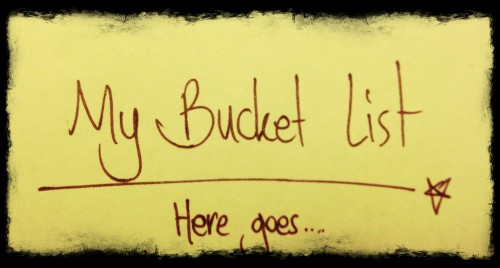 My Bucket List
Here goes....